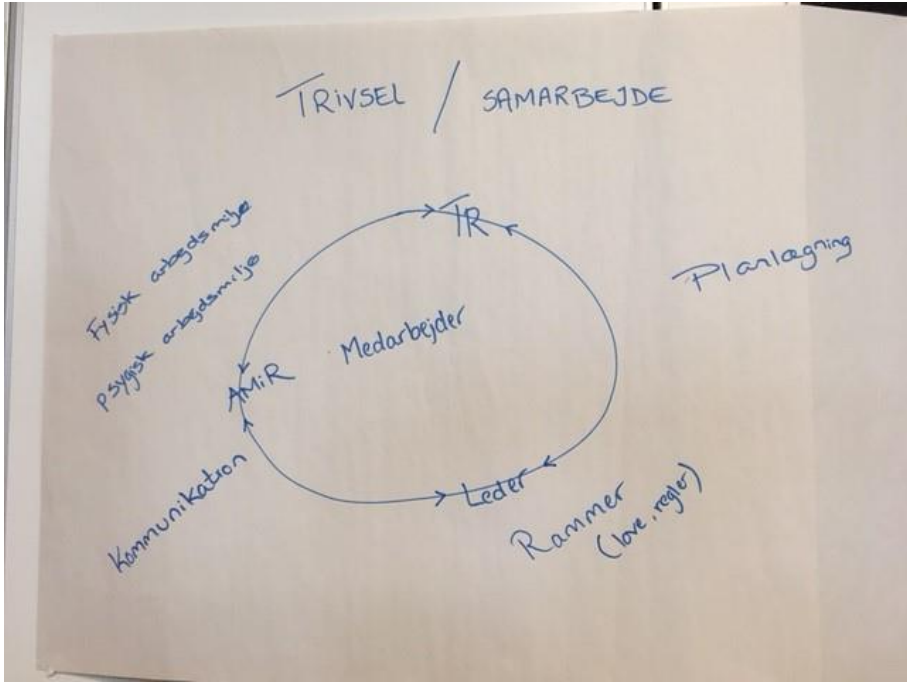 TRIVSEL / SAMARBEJDE
Fysisk arbejdsmiljø
psygisk arbejdsmiljø
TR
Planlægning
Medarbejder
AMiR
Kommunikation
Leder
Rammer
(love, regler)